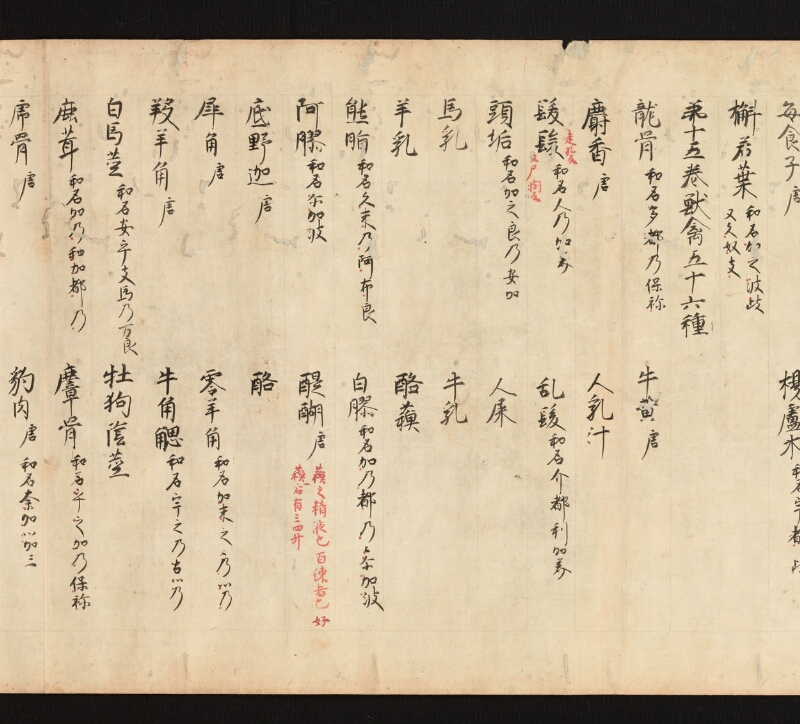 毎食子 唐 楊盧木 和名宇都
槲若葉 和名加之波岐 又久奴支
第十五卷獣禽五十六種
龍骨 和名多都乃保祢 牛黄 唐
麝香 唐 人乳汁
髮髲 和名人乃加美 乱髮 和名介都利加美
頭垢 和名加之良乃安加 人屎
馬乳 牛乳
羊乳 酪蘓
熊脂 和名久末乃阿布良 白膠 和名加乃都乃 加波
阿膠 和名尓加波 醍醐 唐 蘓之精液也 百練者也 好
蘓一石有三四升
底野迦 唐 酪
犀角 唐 零羊角 和名加末之々乃川乃
羖羊角 唐 牛角䚡 和名宇之乃古川乃
白馬茎 和名安乎支馬乃万良 牡狗陰茎
鹿茸 和名加乃和加都乃 麞骨 和名 之加乃保祢
虎骨 唐 豹肉 唐 和名奈加川加三